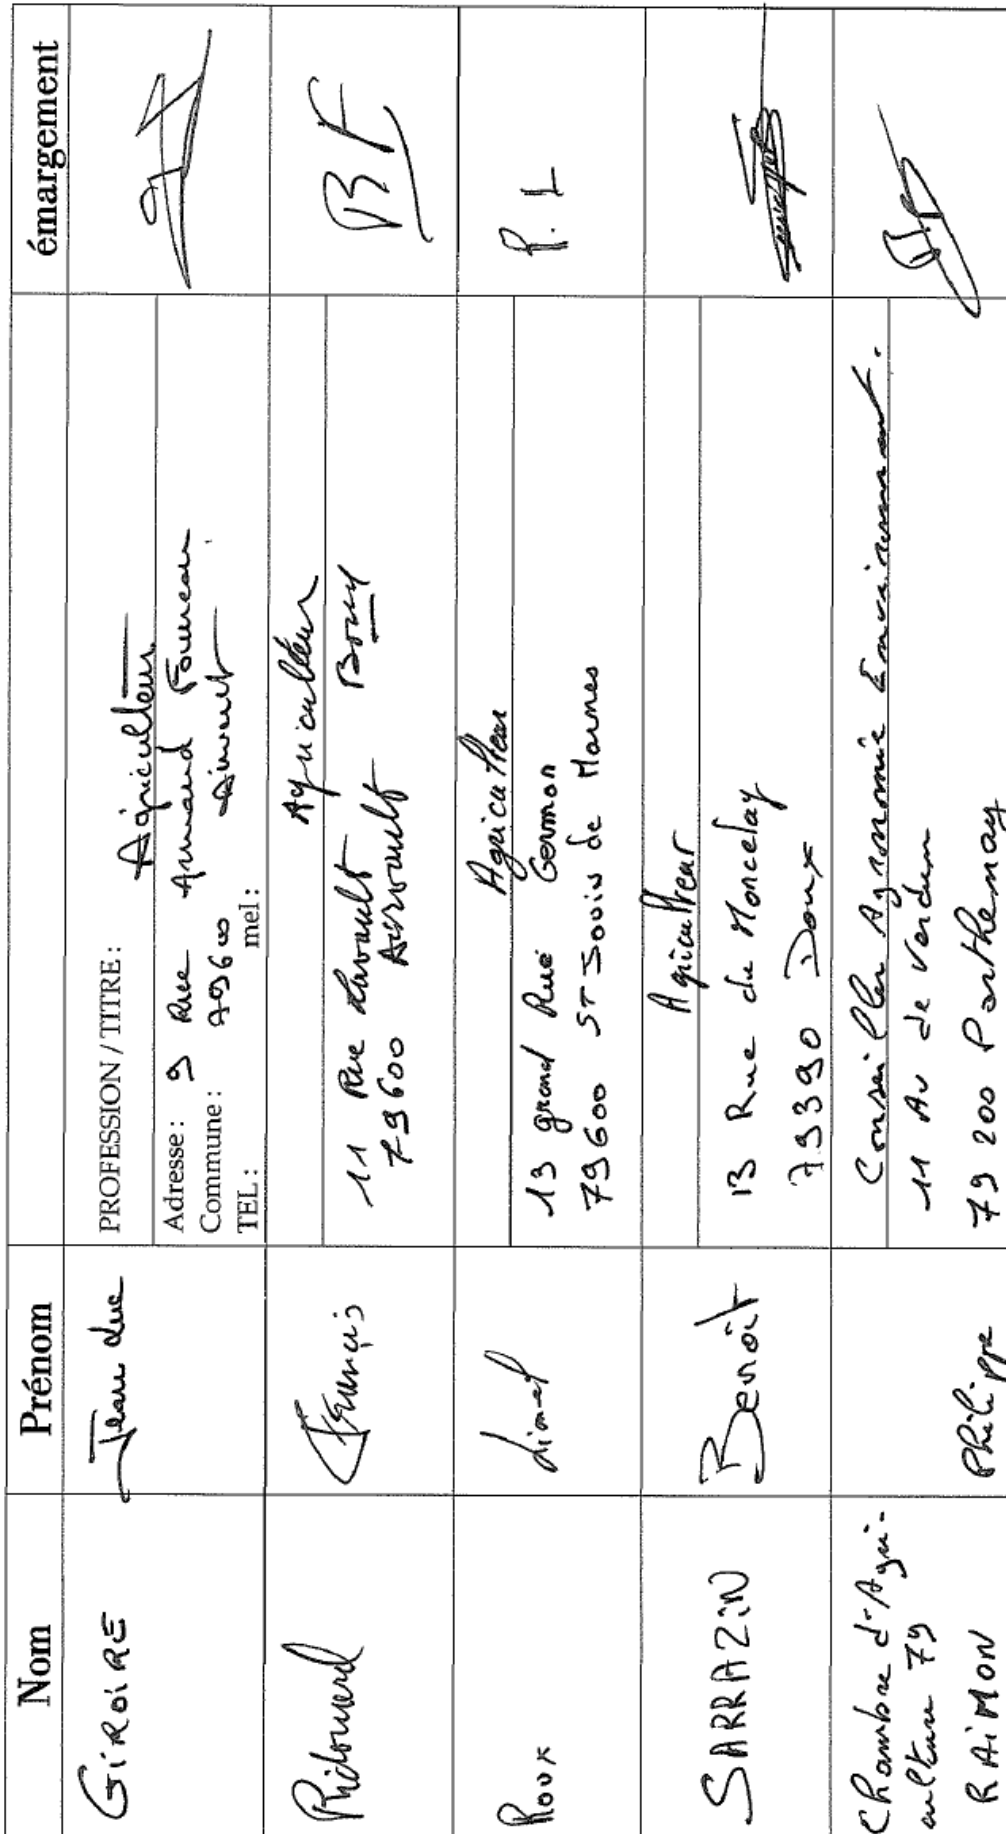 Nom Prénom émargement
GiROiRE Jean Luc
PROFESSION / TITRE : Agriculteur
Adresse : 9 Rue Armand Founeau
Commune : 79600 Airvault
TEL : mel :
Ridouard François
Agriculteur
11 Rue Lavault Borcq
79600 Airvault
B F
Roux Lionel
Agriculteur
13 grand Rue Germon
79600 ST Jouin de Marnes
R. L
SARRAZiN Benoît
Agriculteur
13 Rue du Moncelay
79390 Doux
Chambre d'Agri-
culture 79
RAiMON Philippe
Conseiller Agronomie Environnement.
11 Av de Verdun
79 200 Parthenay